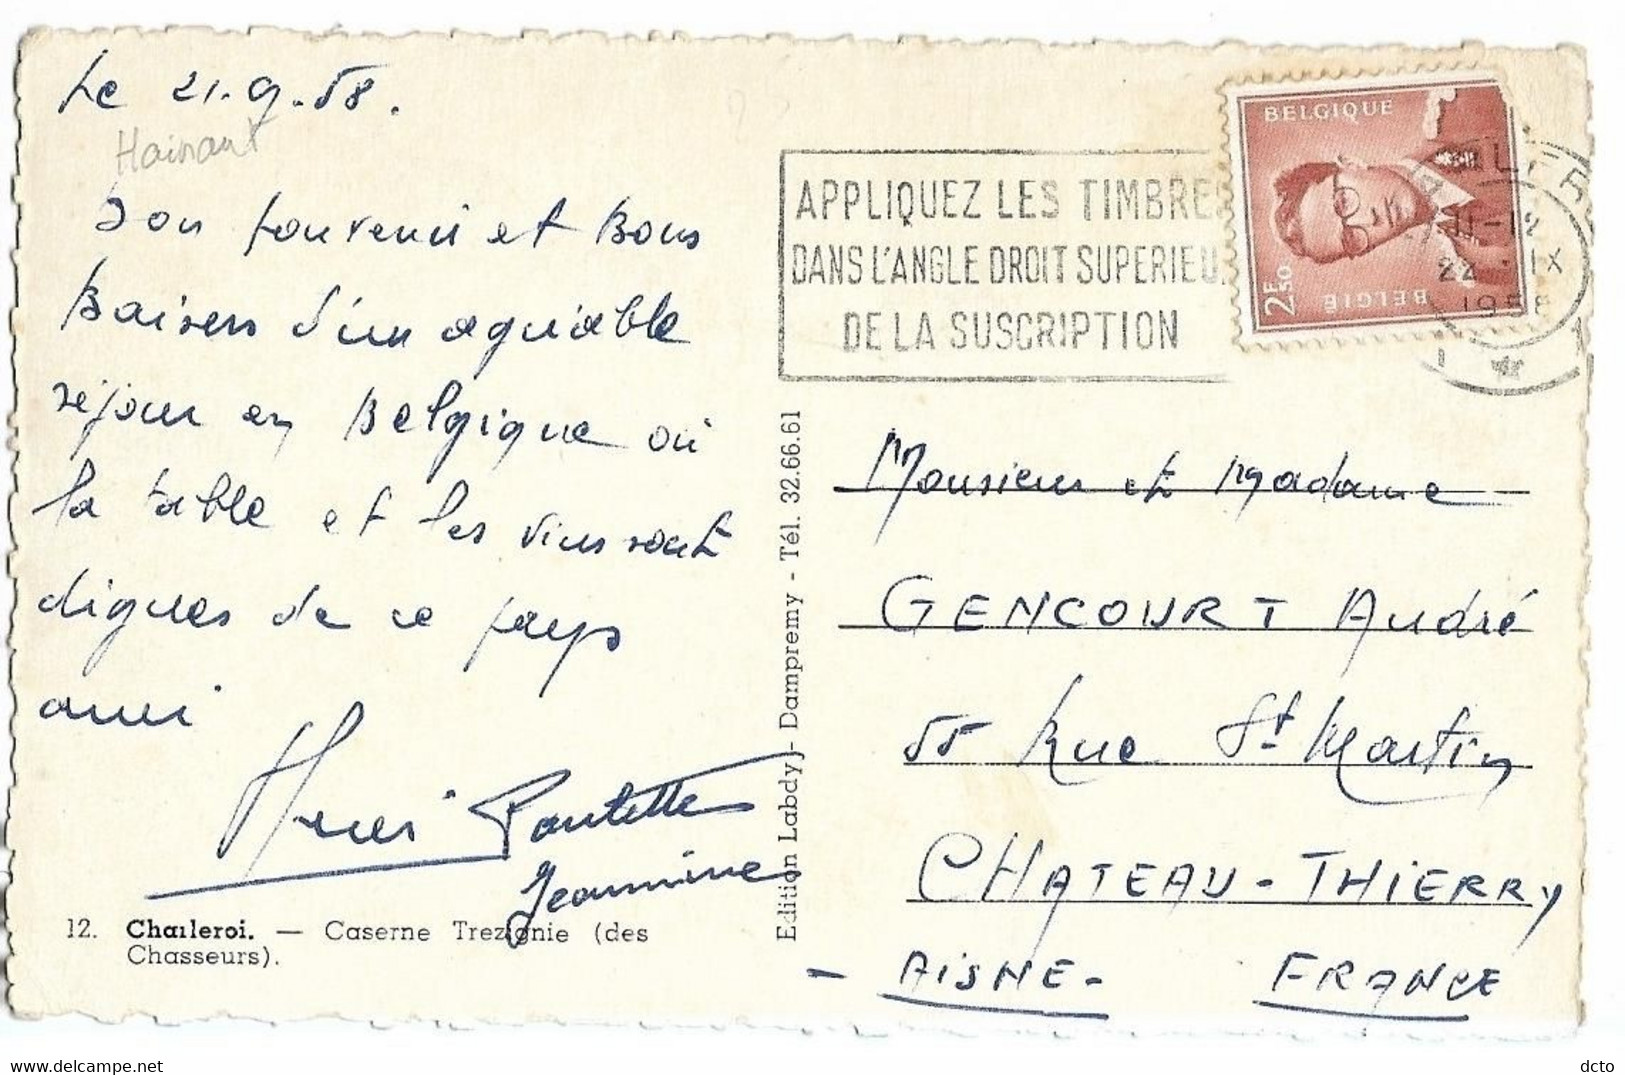 Le 21.9.58.
Hainaut
Bon souvenir et Bons
Baisers d'un agréable
séjour en Belgique où
la table et les vins sont
dignes de ce pays
ami
Henri Paulette
Jeannine
12. Charleroi. — Caserne Trezignie (des
Chasseurs).
Edition Labdy - Dampremy - Tél. 32.66.61
APPLIQUEZ LES TIMBRE
DANS L'ANGLE DROIT SUPERIEU
DE LA SUSCRIPTION
BELGIQUE
2F50
BELGIE
11-12
22 IX
1958
Monsieur et Madame
GENCOURT André
55 Rue St Martin
CHATEAU-THIERRY
- AISNE - FRANCE
dcto